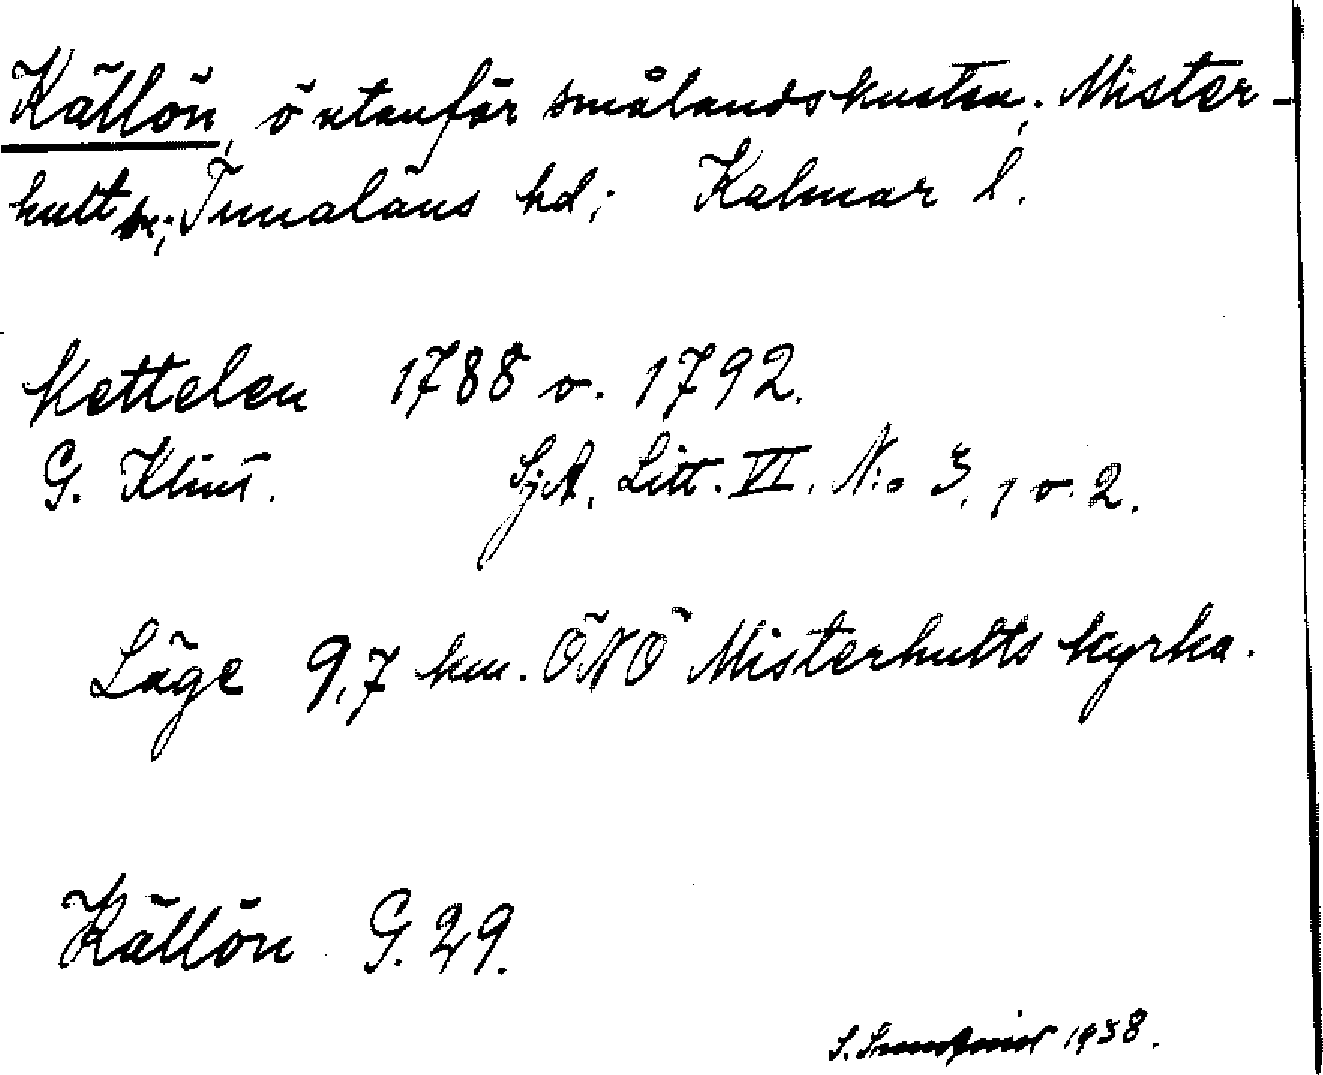 Källön, ö utanför smålandskusten; Mister-
hult sn; Tunaläns hd; Kalmar l.
Kettelen 1788 o. 1792.
G. Klint. SjA. Litt. VI. N:o 3, 1 o. 2.
Läge 9,7 km. ÖNÖ Misterhults kyrka.
Källön G. 29.
S. 1938.